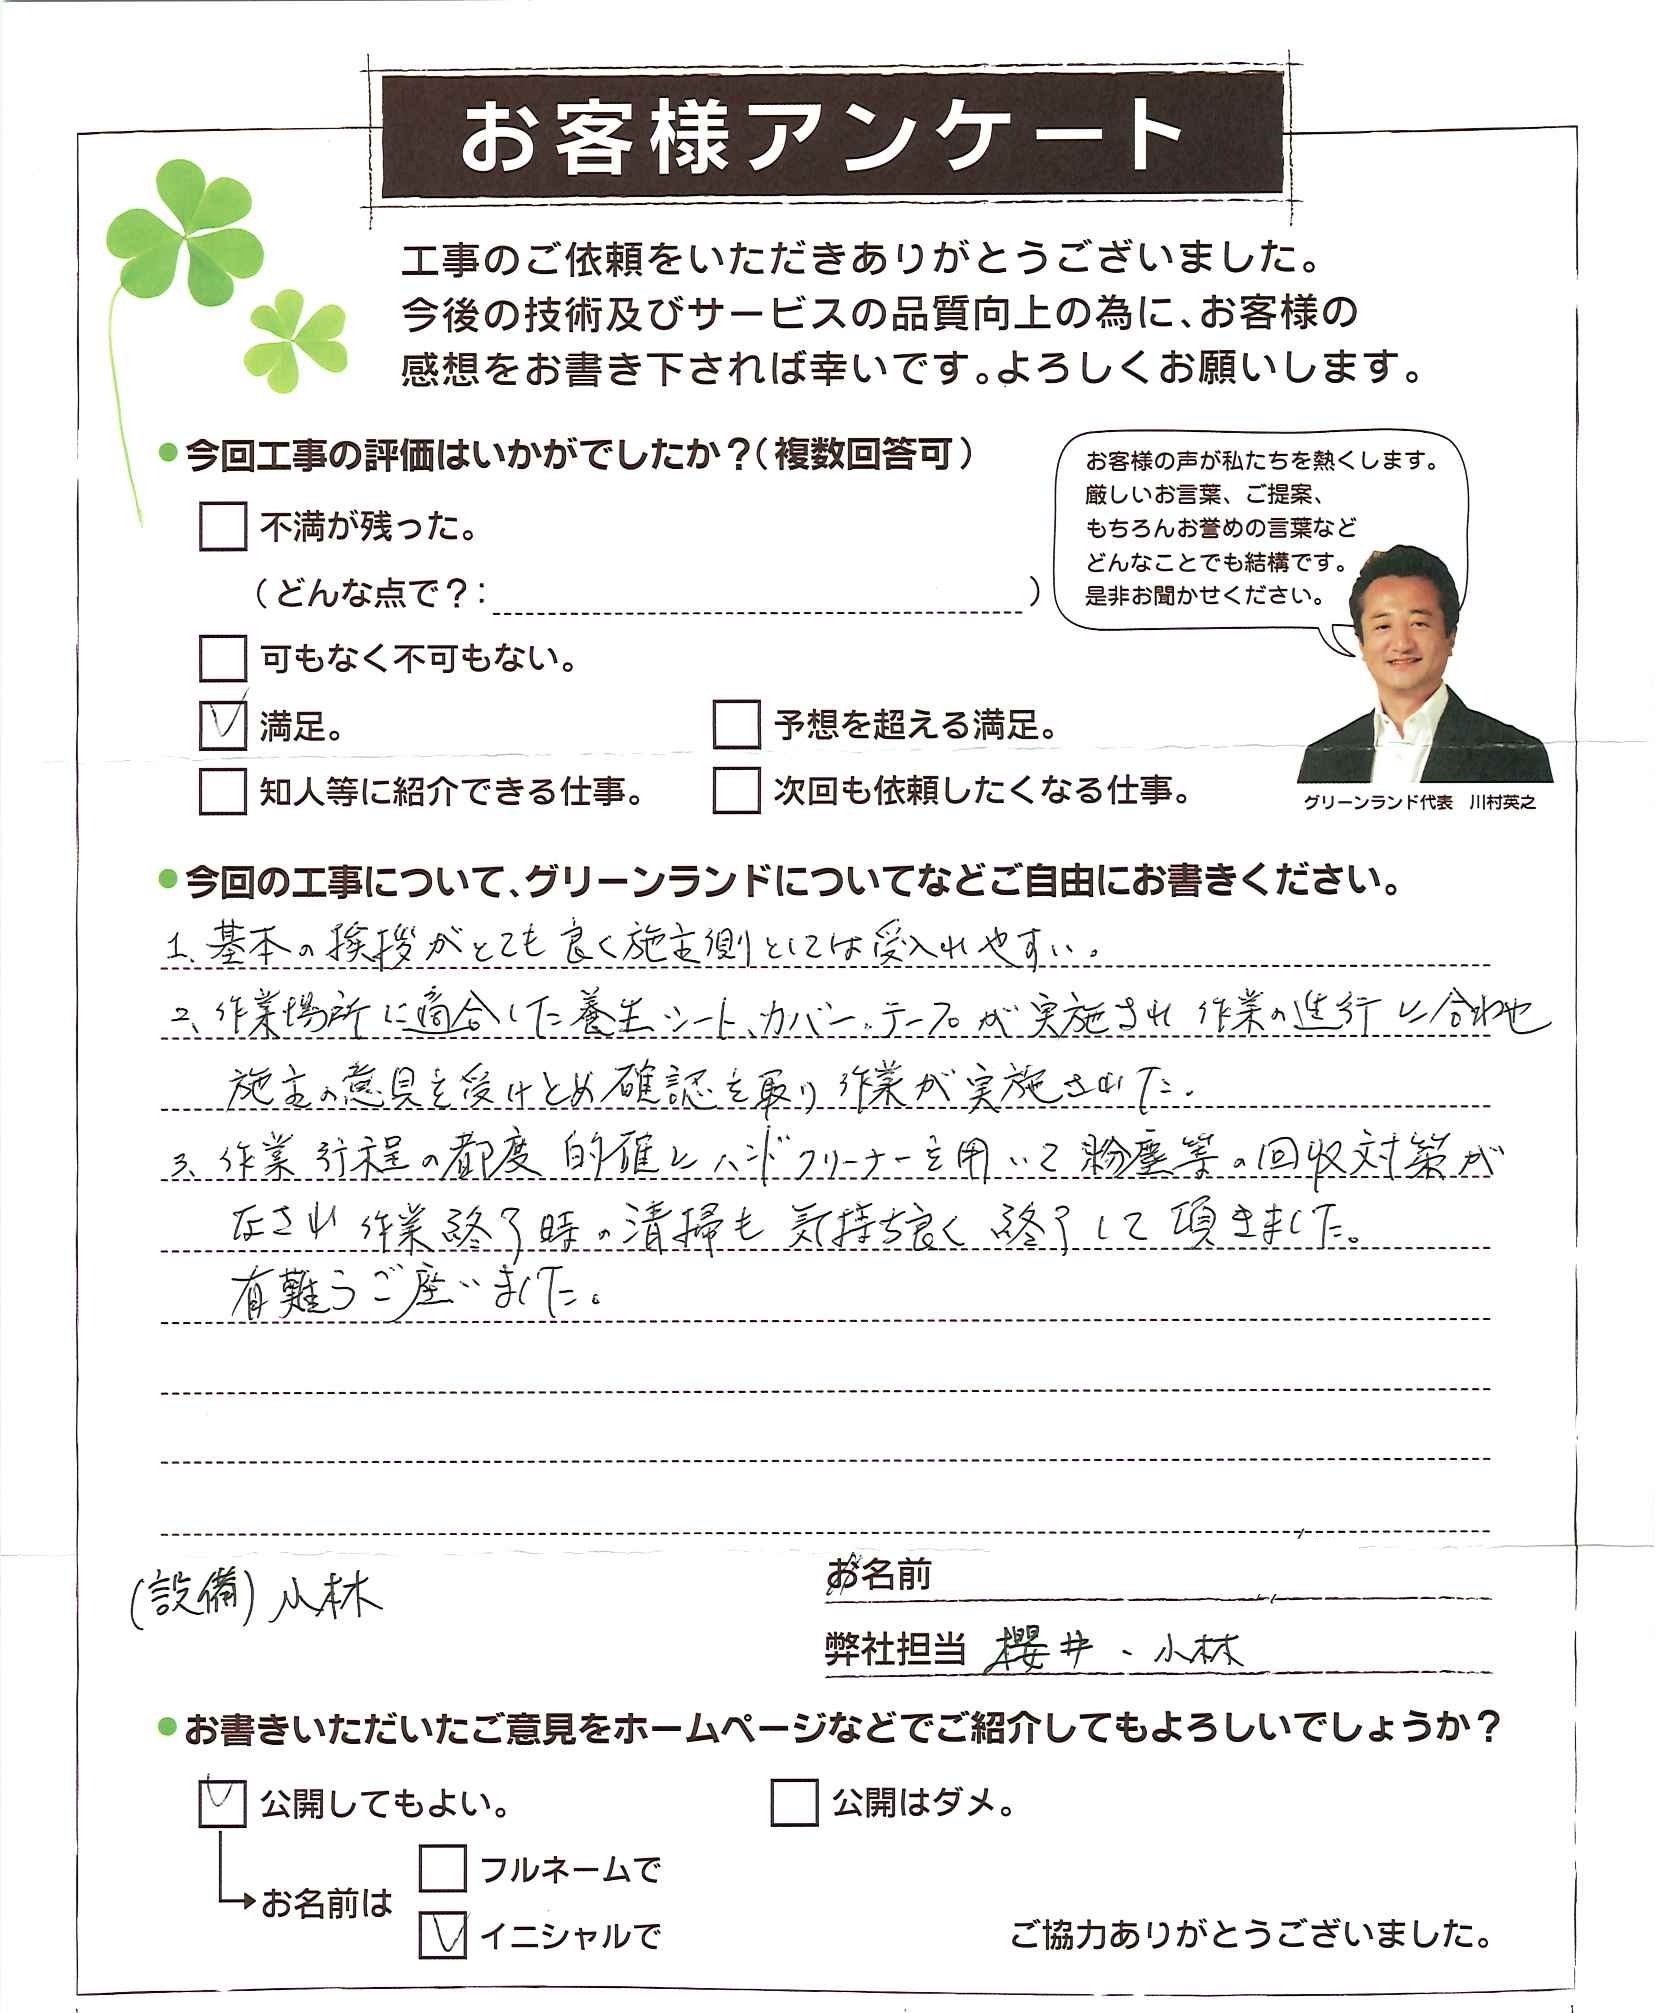 お客様アンケート
工事のご依頼をいただきありがとうございました。
今後の技術及びサービスの品質向上の為に、お客様の
感想をお書き下されば幸いです。よろしくお願いします。
●今回工事の評価はいかがでしたか？（複数回答可）
不満が残った。
（どんな点で？： ）
可もなく不可もない。
満足。
予想を超える満足。
知人等に紹介できる仕事。
次回も依頼したくなる仕事。
お客様の声が私たちを熱くします。
厳しいお言葉、ご提案、
もちろんお誉めの言葉など
どんなことでも結構です。
是非お聞かせください。
グリーンランド代表 川村英之
●今回の工事について、グリーンランドについてなどご自由にお書きください。
1、基本の挨拶がとても良く施主側としては受入れやすい。
2、作業場所に適合した養生シート、カバー、テープが実施され作業の進行に合わせ
施主の意見を受けとめ確認を取り作業が実施された。
3、作業行程の都度的確にハンドクリーナーを用いて粉塵等の回収対策が
なされ作業終了時の清掃も気持ち良く終了して頂きました。
有難うご座いました。
(設備)小林
お名前
弊社担当 櫻井、小林
●お書きいただいたご意見をホームページなどでご紹介してもよろしいでしょうか？
公開してもよい。
公開はダメ。
お名前は
フルネームで
イニシャルで
ご協力ありがとうございました。